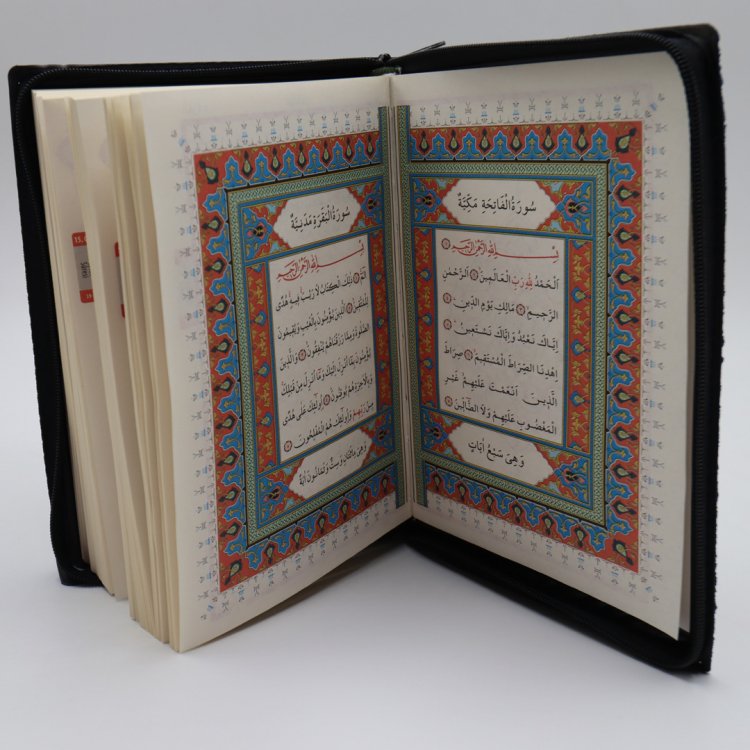 سُورَةُ الْفَاتِحَةِ مَكِّيَّةٌ
بِسْمِ اللّٰهِ الرَّحْمٰنِ الرَّحِيمِ
اَلْحَمْدُ لِلّٰهِ رَبِّ الْعَالَمِينَ ۝ اَلرَّحْمٰنِ
الرَّحِيمِ ۝ مَالِكِ يَوْمِ الدِّينِ ۝
اِيَّاكَ نَعْبُدُ وَاِيَّاكَ نَسْتَعِينُ ۝
اِهْدِنَا الصِّرَاطَ الْمُسْتَقِيمَ ۝ صِرَاطَ
الَّذِينَ اَنْعَمْتَ عَلَيْهِمْ غَيْرِ
الْمَغْضُوبِ عَلَيْهِمْ وَلَا الضَّالِّينَ ۝
وَهِيَ سَبْعُ اٰيَاتٍ
سُورَةُ الْبَقَرَةِ مَدَنِيَّةٌ
بِسْمِ اللّٰهِ الرَّحْمٰنِ الرَّحِيمِ
الٓمٓ ۝ ذٰلِكَ الْكِتَابُ لَا رَيْبَ فِيهِ هُدًى
لِلْمُتَّقِينَ ۝ اَلَّذِينَ يُؤْمِنُونَ بِالْغَيْبِ وَيُقِيمُونَ
الصَّلٰوةَ وَمِمَّا رَزَقْنَاهُمْ يُنْفِقُونَ ۝ وَالَّذِينَ
يُؤْمِنُونَ بِمَا اُنْزِلَ اِلَيْكَ وَمَا اُنْزِلَ مِنْ قَبْلِكَ
وَبِالْاٰخِرَةِ هُمْ يُوقِنُونَ ۝ اُولٰئِكَ عَلٰى هُدًى
مِنْ رَبِّهِمْ وَاُولٰئِكَ هُمُ الْمُفْلِحُونَ ۝
وَهِيَ مِائَتَانِ وَسِتٌّ وَثَمَانُونَ اٰيَةً